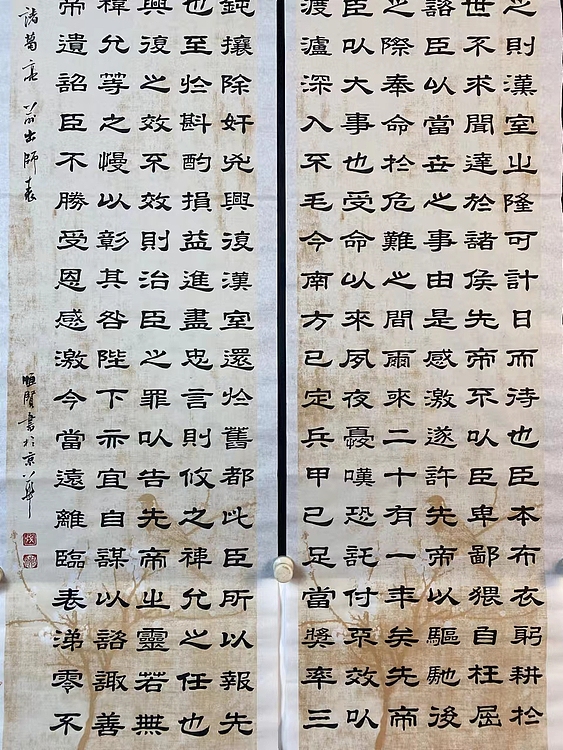 之則漢室之隆可計日而待也臣本布衣躬耕於
世不求聞達於諸侯先帝不以臣卑鄙猥自枉屈
諮臣以當世之事由是感激遂許先帝以驅馳後
之際奉命於危難之間爾來二十有一年矣先帝
臣以大事也受命以來夙夜憂嘆恐託付不效以
渡瀘深入不毛今南方已定兵甲已足當獎率三
鈍攘除奸兇興復漢室還於舊都此臣所以報先
也至於斟酌損益進盡忠言則攸之禕允之任也
興復之效不效則治臣之罪以告先帝之靈若無
禕允等之慢以彰其咎陛下亦宜自謀以諮諏善
帝遺詔臣不勝受恩感激今當遠離臨表涕零不
諸葛亮 前出師表 賢書於京華